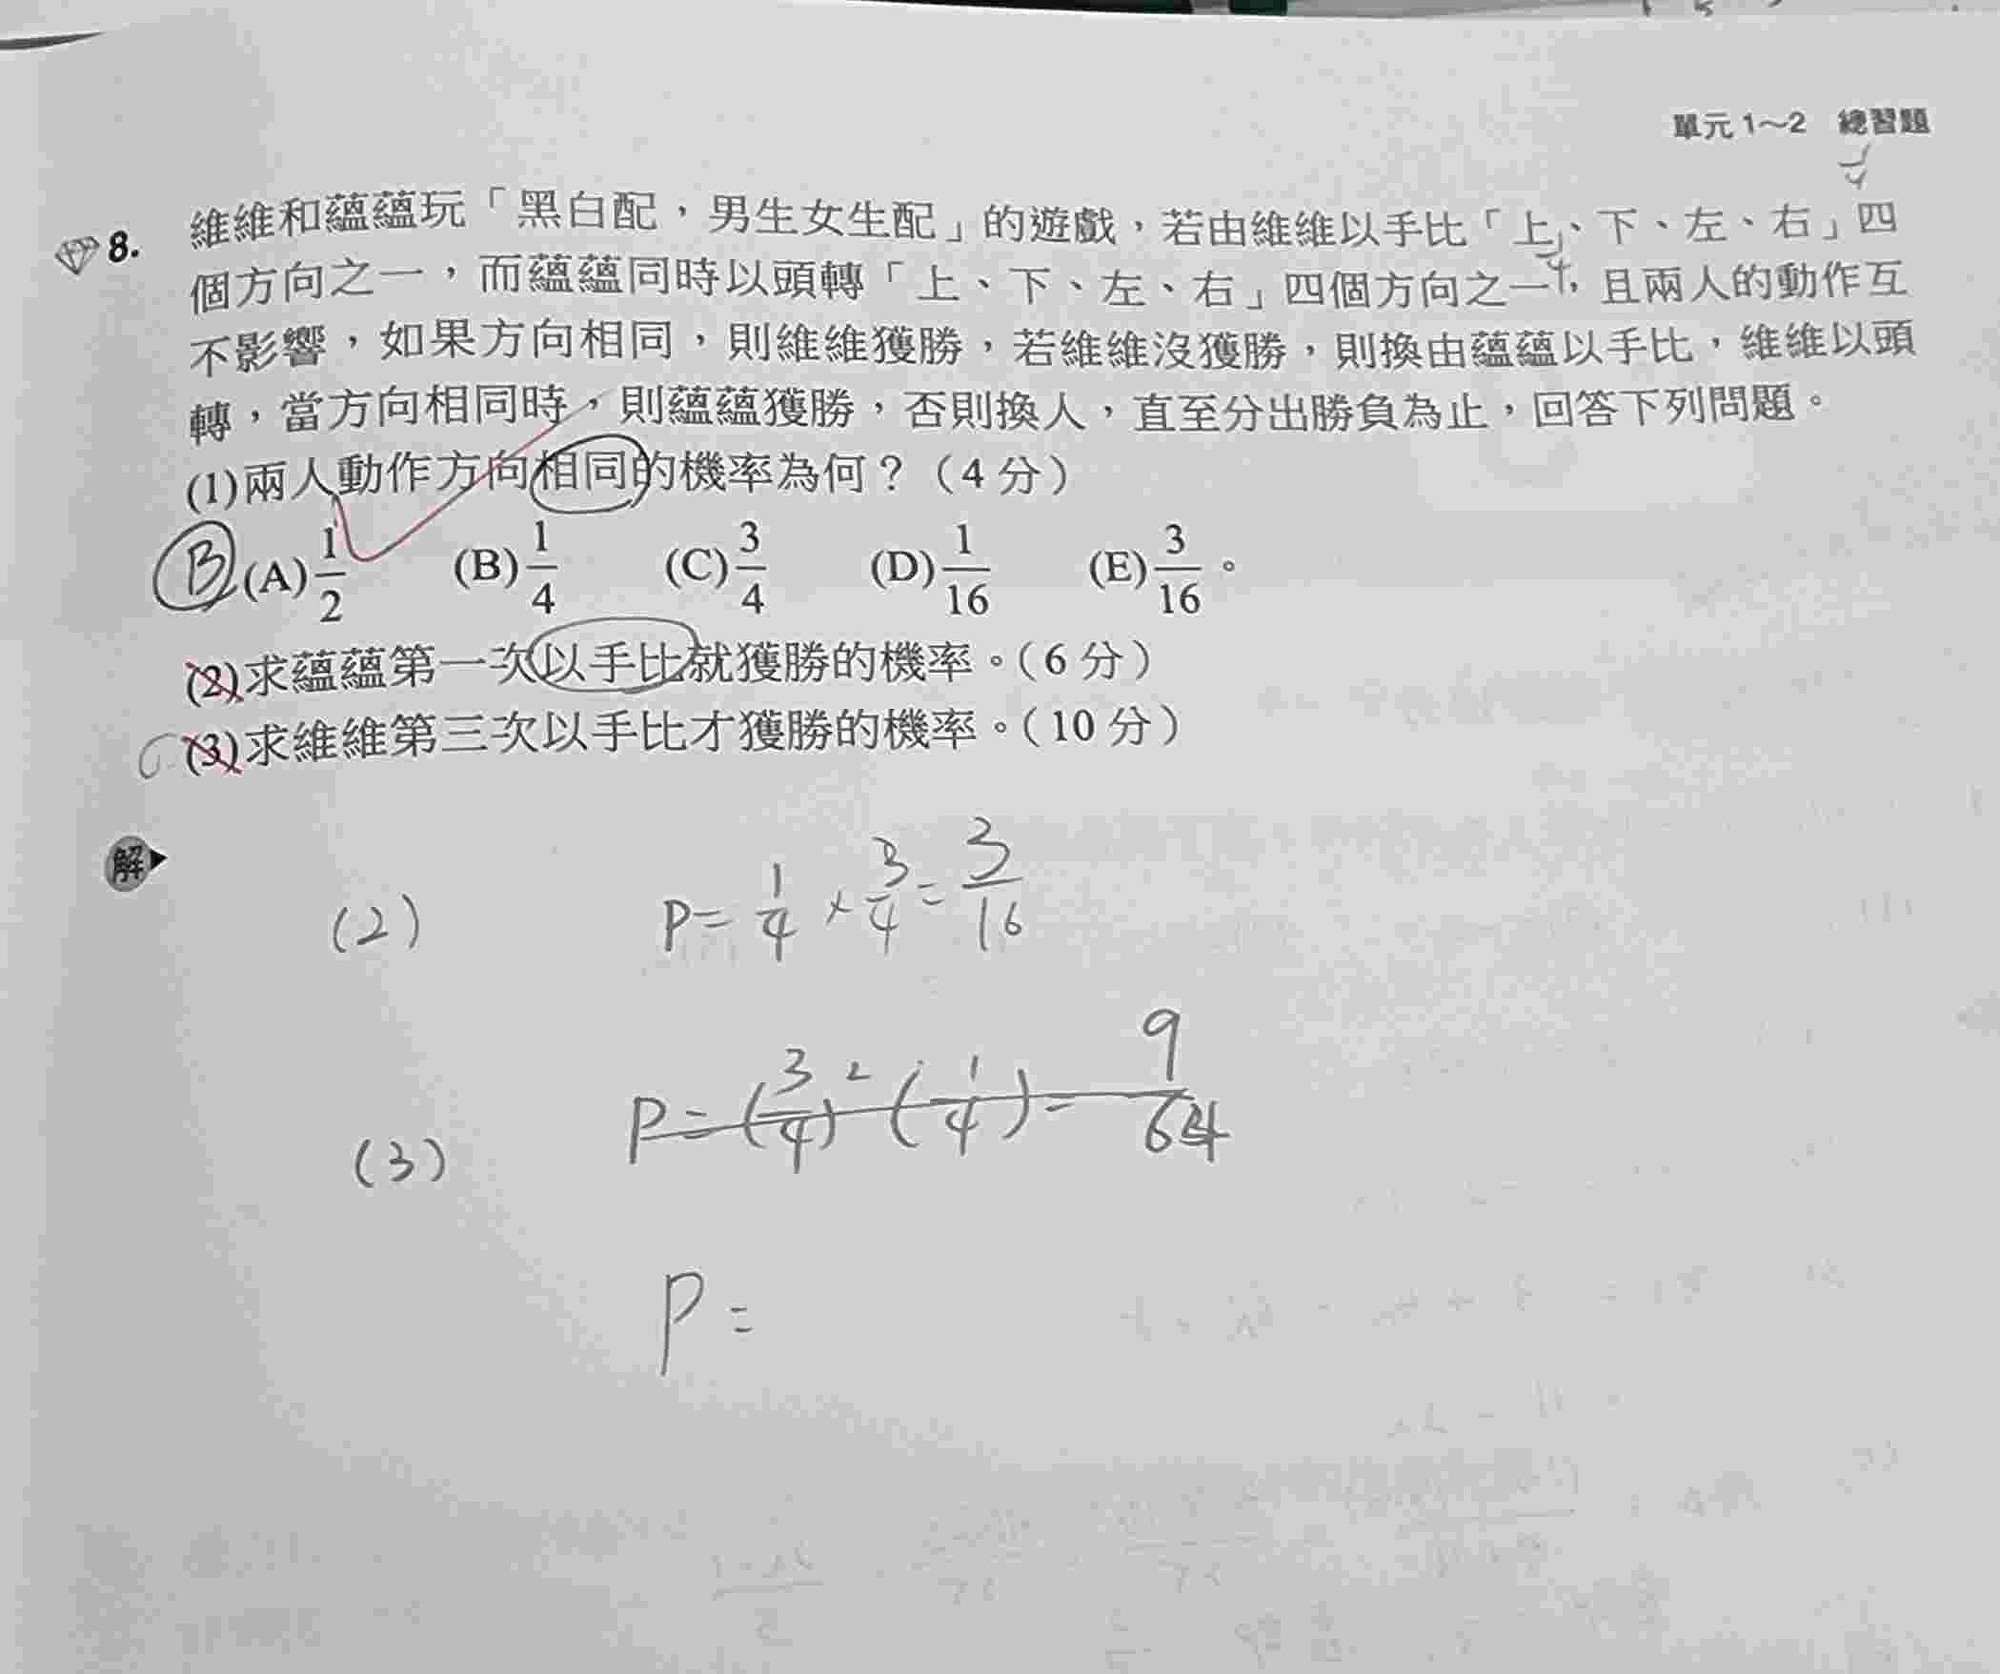 單元 1～2 總習題
8. 維維和蘊蘊玩「黑白配，男生女生配」的遊戲，若由維維以手比「上、下、左、右」四
個方向之一，而蘊蘊同時以頭轉「上、下、左、右」四個方向之一，且兩人的動作互
不影響，如果方向相同，則維維獲勝，若維維沒獲勝，則換由蘊蘊以手比，維維以頭
轉，當方向相同時，則蘊蘊獲勝，否則換人，直至分出勝負為止，回答下列問題。
(1)兩人動作方向相同的機率為何？（4 分）
B (A) 1/2 (B) 1/4 (C) 3/4 (D) 1/16 (E) 3/16。
(2)求蘊蘊第一次以手比就獲勝的機率。（6 分）
(3)求維維第三次以手比才獲勝的機率。（10 分）
解
(2) P = 1/4 × 3/4 = 3/16
(3) P = (3/4)² (1/4) = 9/64
P =